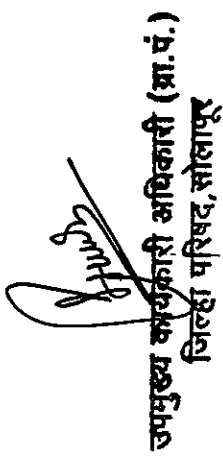 उपमुख्य कार्यकारी अधिकारी (ग्रा.पं.)
जिल्हा परिषद, सोलापूर